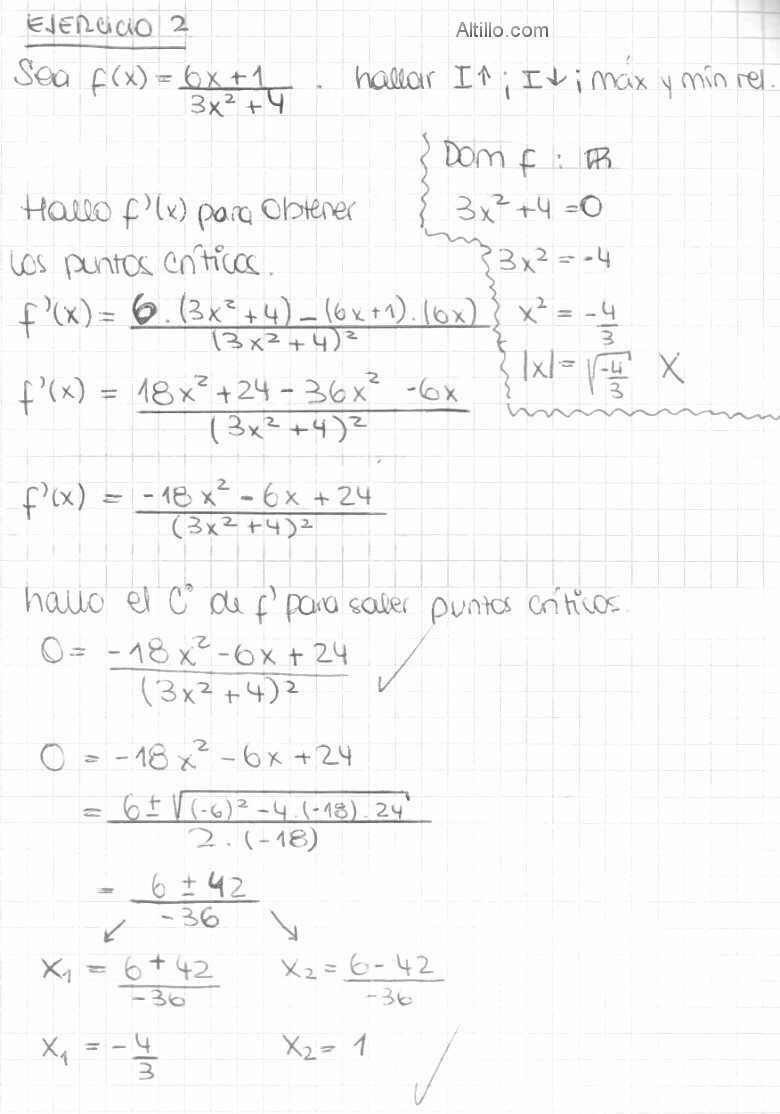 EJERCICIO 2
Altillo.com
Sea f(x) = (6x+1)/(3x²+4) . hallar I↑ ; I↓ ; máx y min rel.
Dom f : ℝ
3x²+4 = 0
3x² = -4
x² = -4/3
|x| = √(-4/3) X
Hallo f'(x) para obtener
los puntos críticos.
f'(x) = (6.(3x²+4) - (6x+1).(6x))/(3x²+4)²
f'(x) = (18x²+24 - 36x² -6x)/(3x²+4)²
f'(x) = (-18x² - 6x + 24)/(3x²+4)²
hallo el C° de f' para saber puntos críticos.
0 = (-18x² - 6x + 24)/(3x²+4)² ✓
0 = -18x² - 6x + 24
= (6 ± √((-6)² - 4.(-18).24))/(2.(-18))
= (6 ± 42)/(-36)
↙ ↘
x₁ = (6+42)/(-36) x₂ = (6-42)/(-36)
x₁ = -4/3 x₂ = 1 ✓